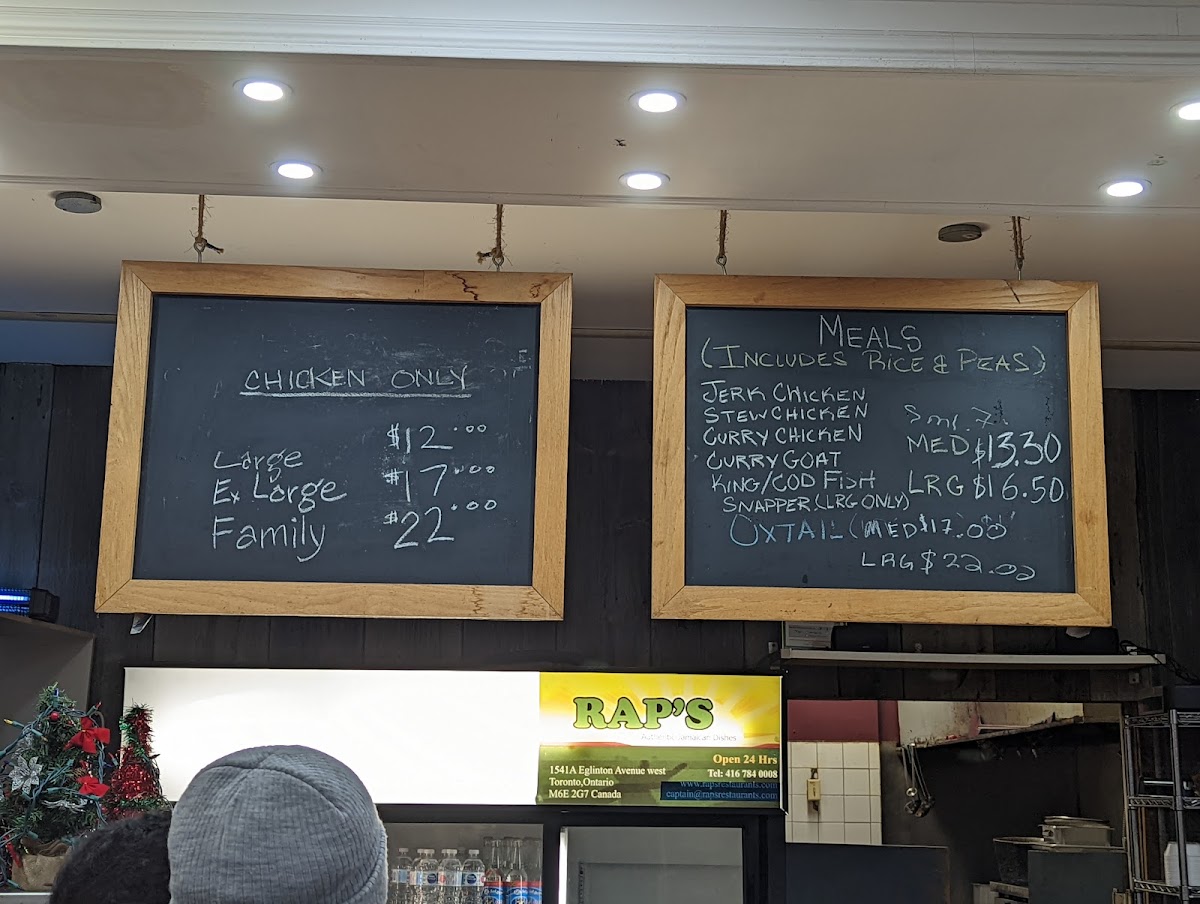 CHICKEN ONLY
Large $12.00
Ex Large $17.00
Family $22.00
MEALS
(INCLUDES RICE & PEAS)
JERK CHICKEN
STEW CHICKEN
CURRY CHICKEN
CURRY GOAT
KING/COD FISH
SNAPPER (LRG ONLY)
MED $13.30
LRG $16.50
OXTAIL (MED $17.00
LRG $22.00
RAP'S
Authentic Jamaican Dishes
Open 24 Hrs
1541A Eglinton Avenue west
Toronto,Ontario
M6E 2G7 Canada
Tel: 416 784 0008
www.rapsrestaurants.com
captain@rapsrestaurants.com